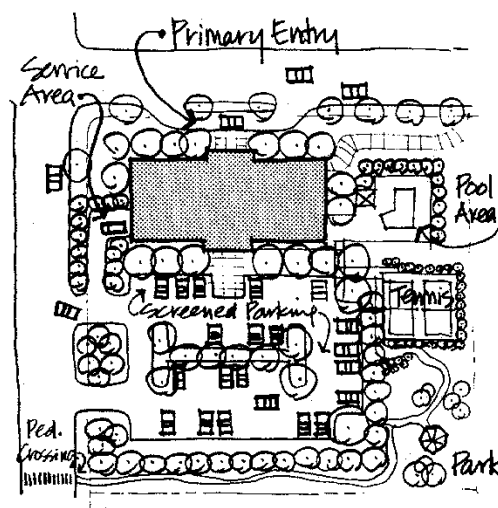 Primary Entry
Service
Area
Pool
Area
Tennis
Screened Parking
Ped.
Crossing
Park